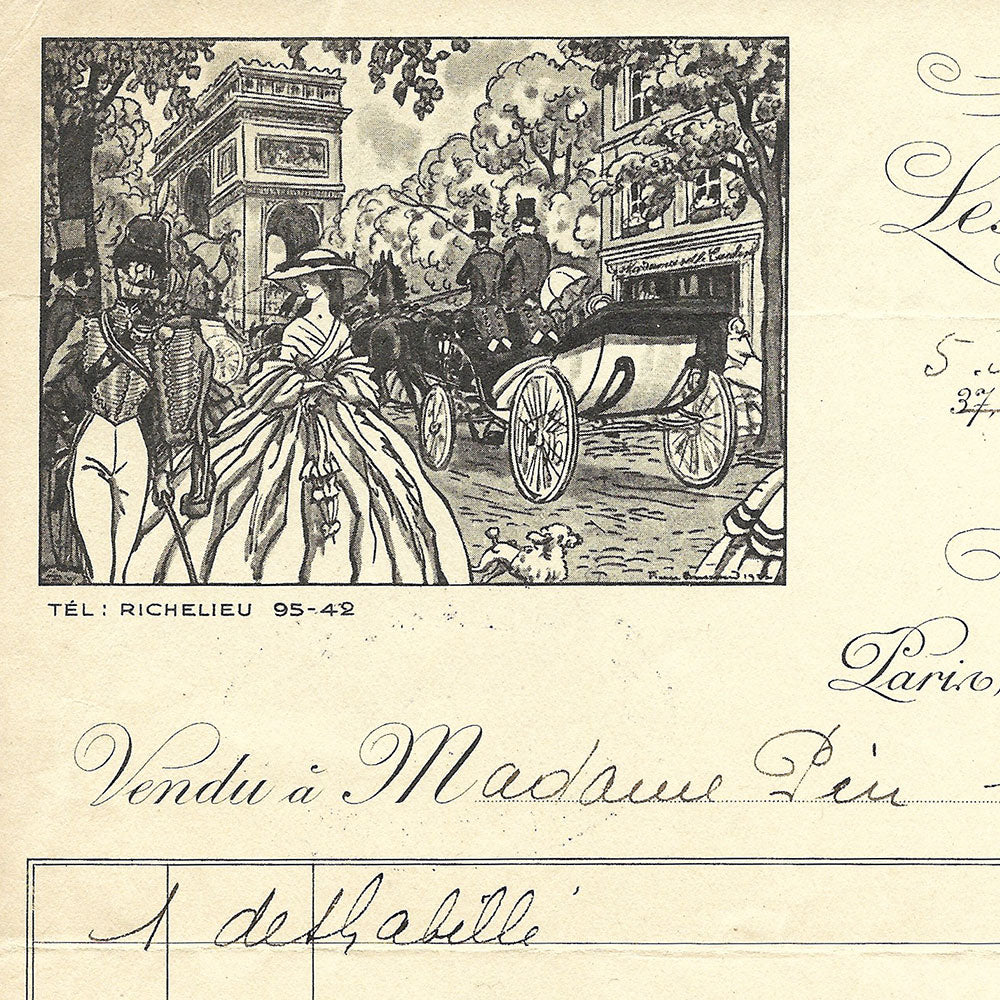 Les
5
37
TÉL: RICHELIEU 95-42
Paris,
Vendu à Madame Pin -
1 deshabillé